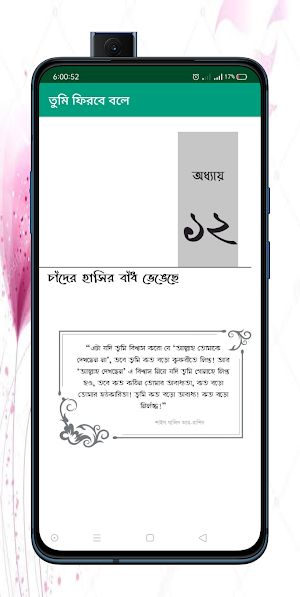 6:00:52
17%
তুমি ফিরবে বলে
অধ্যায়
১২
চাঁদের হাসির বাঁধ ভেঙেছে
“এটা যদি তুমি বিশ্বাস করো যে ‘আল্লাহ তোমাকে
দেখছেন না’, তবে তুমি কত বড়ো কুফরীতে লিপ্ত! আর
‘আল্লাহ দেখছেন’ এ বিশ্বাস নিয়ে যদি তুমি গোনাহে লিপ্ত
হও, তবে কত কঠিন তোমার অবাধ্যতা, কত বড়ো
তোমার হঠকারিতা! তুমি কত বড়ো অবাধ্য! কত বড়ো
নির্লজ্জ!”